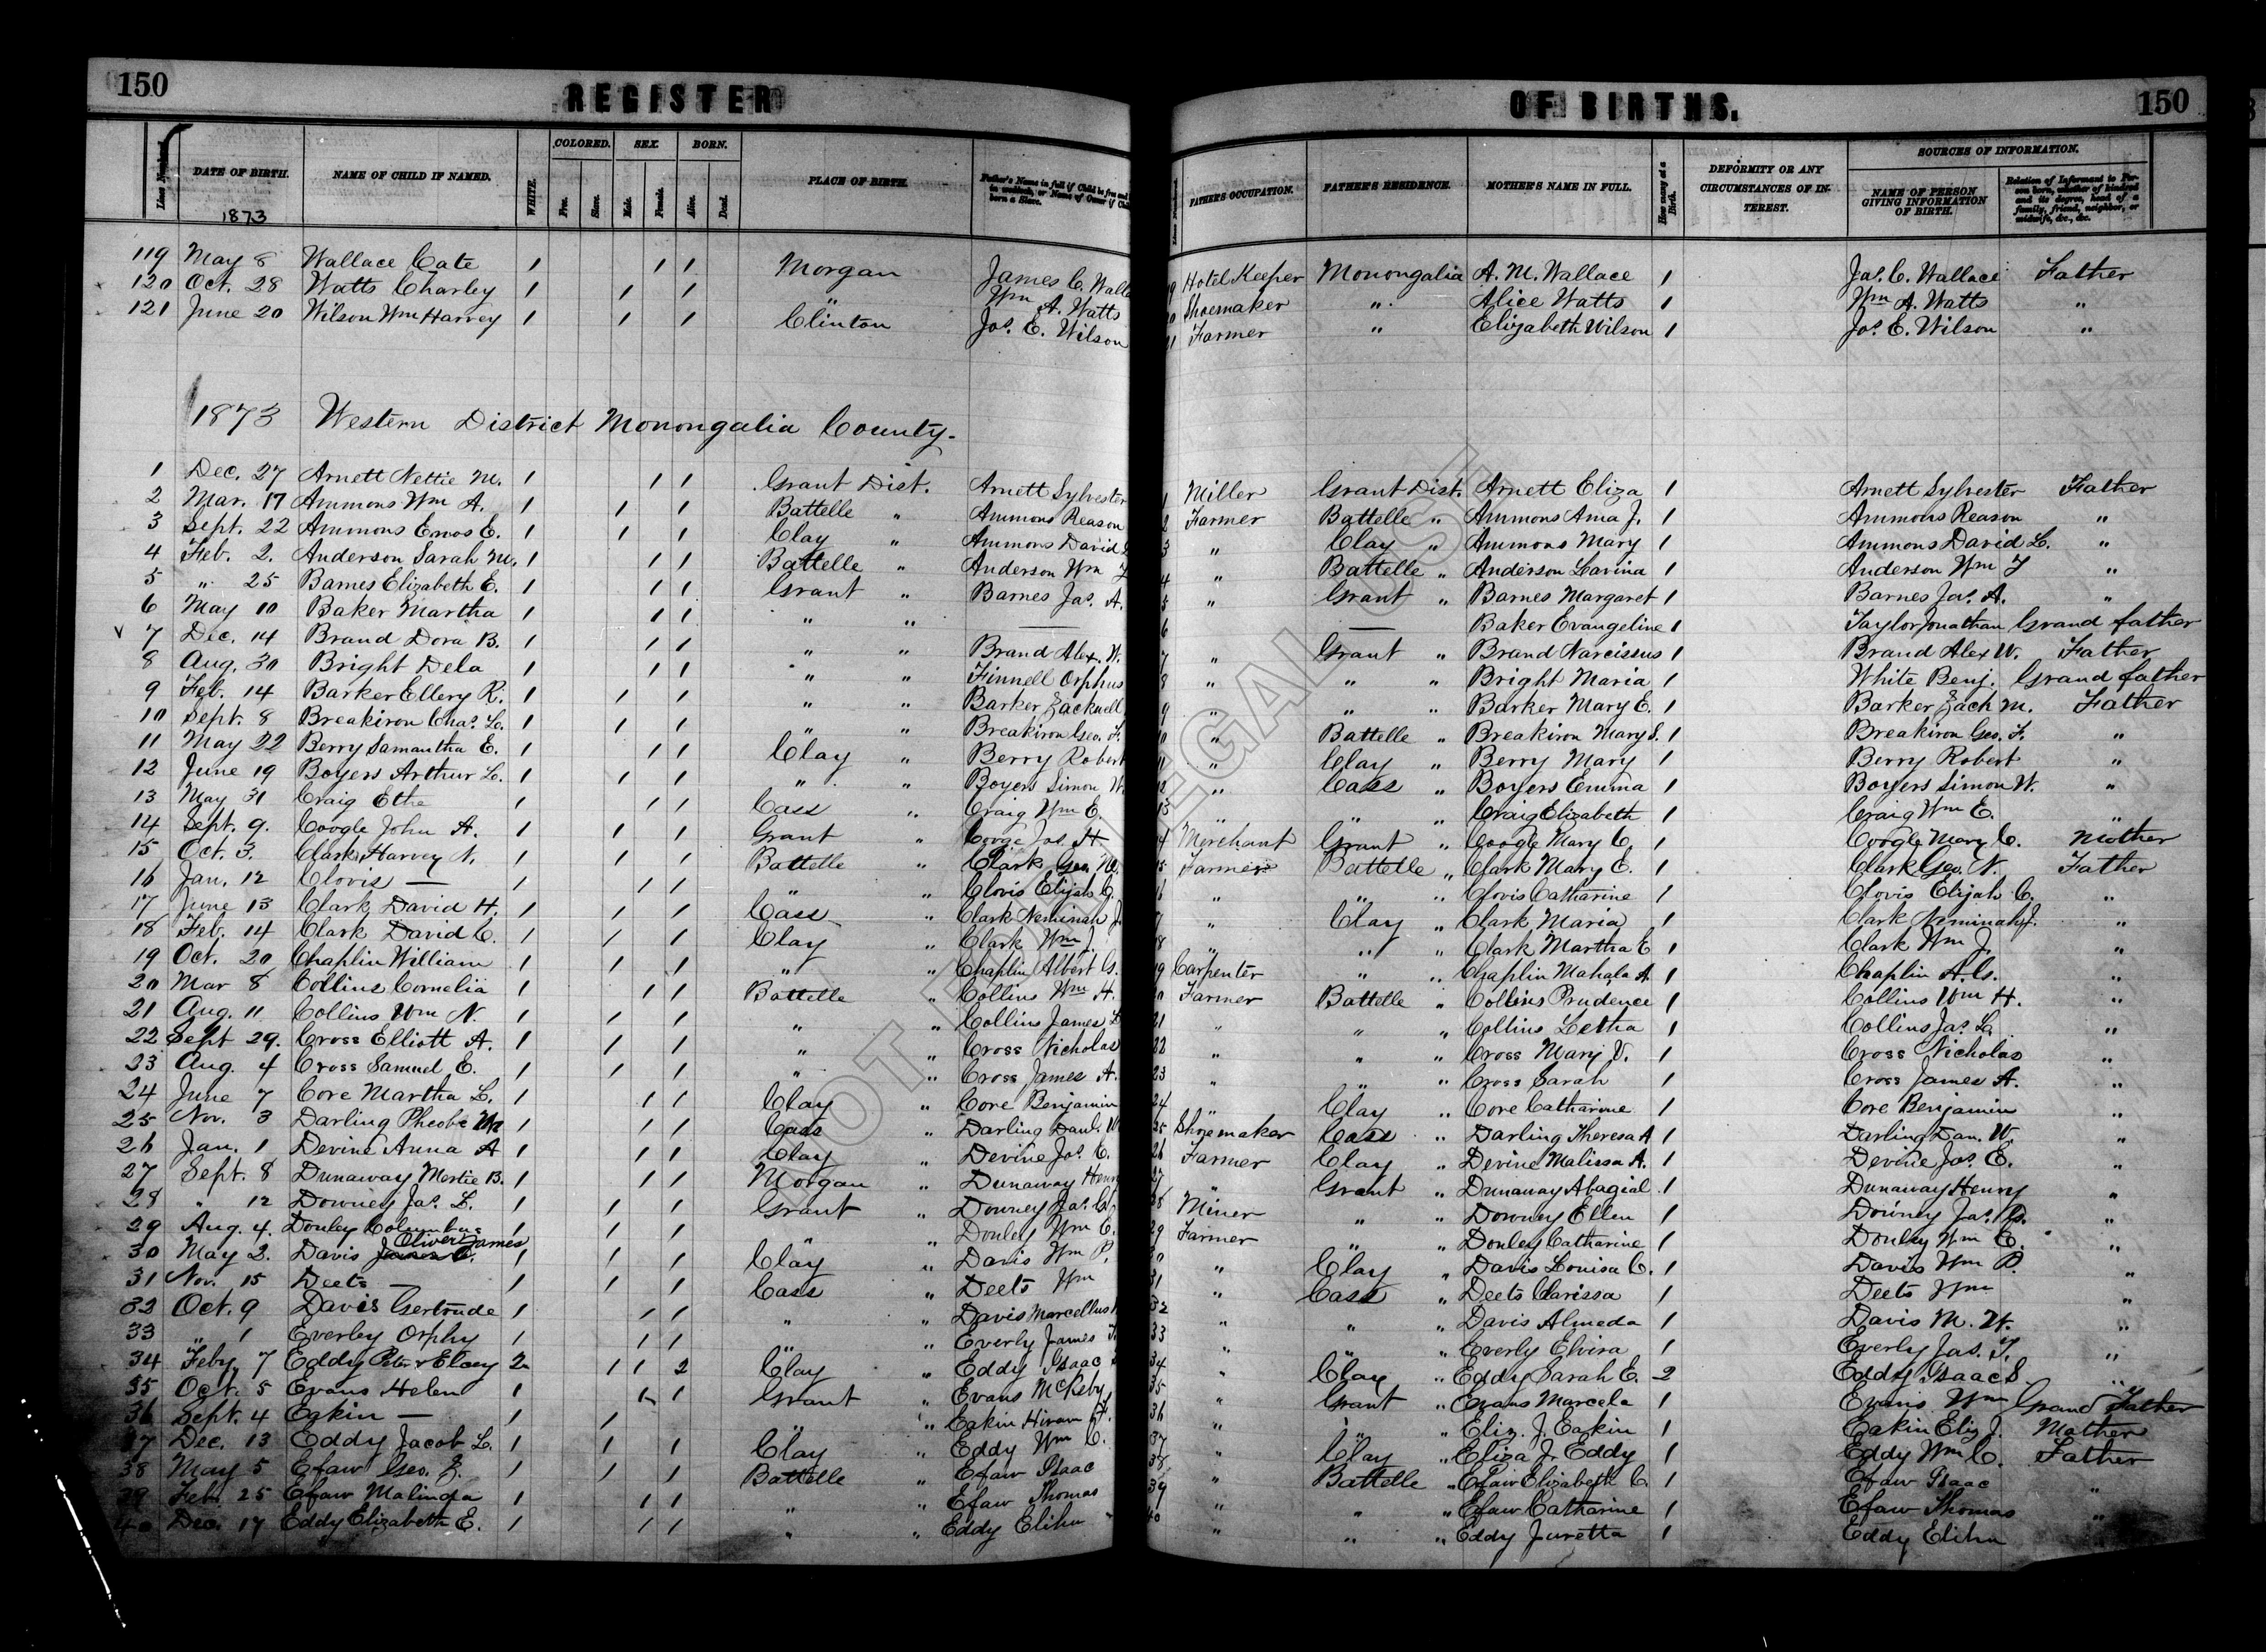 150 REGISTER OF BIRTHS. 150
Line Number. DATE OF BIRTH. NAME OF CHILD IF NAMED. WHITE. COLORED. Free. Slave. SEX. Male. Female. BORN. Alive. Dead. PLACE OF BIRTH. Father's Name in full if Child be free and born in wedlock, or Name of Owner if Child born a Slave. FATHER'S OCCUPATION. FATHER'S RESIDENCE. MOTHER'S NAME IN FULL. How many at a Birth. DEFORMITY OR ANY CIRCUMSTANCES OF INTEREST. SOURCES OF INFORMATION. NAME OF PERSON GIVING INFORMATION OF BIRTH. Relation of Informant to Person born, whether of kindred and its degree, head of a family, friend, neighbor, or midwife, &c., &c.
1873
119 May 8 Wallace Cate 1 1 1 Morgan James C. Walla Hotel Keeper Monongalia A. M. Wallace 1 Jas. C. Wallace Father
120 Oct. 28 Watts Charley 1 1 1 " Wm A. Watts Shoemaker " Alice Watts 1 Wm A. Watts "
121 June 20 Wilson Wm Harvey 1 1 1 Clinton Jos. E. Wilson Farmer " Elizabeth Wilson 1 Jos. E. Wilson "
1873 Western District Monongalia County-
1 Dec. 27 Arnett Nettie M. 1 1 1 Grant Dist. Arnett Sylvester 1 Miller Grant Dist. Arnett Eliza 1 Arnett Sylvester Father
2 Mar. 17 Ammons Wm A. 1 1 1 Battelle " Ammons Reason 2 Farmer Battelle " Ammons Ama J. 1 Ammons Reason "
3 Sept. 22 Ammons Enos E. 1 1 1 Clay " Ammons David 3 " Clay " Ammons Mary 1 Ammons David L. "
4 Feb. 2. Anderson Sarah M. 1 1 1 Battelle " Anderson Wm 4 " Battelle " Anderson Lavina 1 Anderson Wm "
5 " 25 Barnes Elizabeth E. 1 1 1 Grant " Barnes Jas. A. 5 " Grant " Barnes Margaret 1 Barnes Jas. A. "
6 May 10 Baker Martha 1 1 1 " " — 6 — Baker Evangeline 1 Taylor Jonathan Grand father
7 Dec. 14 Brand Dora B. 1 1 1 " " Brand Alex. W. 7 " Grant " Brand Narcissus 1 Brand Alex W. Father
8 Aug. 30 Bright Dela 1 1 1 " " Finnell Orphus 8 " " " Bright Maria 1 White Benj. Grand father
9 Feb. 14 Barker Ellery R. 1 1 1 " " Barker 9 " " " Barker Mary E. 1 Barker Zach M. Father
10 Sept. 8 Breakiron Chas. L. 1 1 1 " " Breakiron Geo. F. 10 " Battelle " Breakiron Mary S. 1 Breakiron Geo. F. "
11 May 22 Berry Samantha E. 1 1 1 Clay " Berry Robert 11 " Clay " Berry Mary 1 Berry Robert "
12 June 19 Boyers Arthur L. 1 1 1 " " Boyers Simon W. 12 " Cass " Boyers Emma 1 Boyers Simon W. "
13 May 31 Craig Ethe 1 1 1 Cass " Craig Wm E. 13 " " " Craig Elizabeth 1 Craig Wm E. "
14 Sept. 9. Coogle John A. 1 1 1 Grant " Jos. H 14 Merchant Grant " Coogle Mary C. 1 Coogle Mary C. Mother
15 Oct. 3. Clark Harvey N. 1 1 1 Battelle " Clark Geo. N. 15 Farmer Battelle " Clark Mary E. 1 Clark Geo. N. Father
16 Jan. 12 Clovis — 1 1 1 " " Clovis Elijah C. 16 " " " Clovis Catharine 1 Clovis Elijah C. "
17 June 13 Clark David H. 1 1 1 Cass " Clark Neminah J. " Clay " Clark Maria 1 Clark Neminah J. "
18 Feb. 14 Clark David C. 1 1 1 Clay " Clark Wm J. 18 " " " Clark Martha E 1 Clark Wm J. "
19 Oct. 20 Chaplin William 1 1 1 " " Chaplin Albert G. 19 Carpenter " " Chaplin Mahala A. 1 Chaplin A. G. "
20 Mar 8 Collins Cornelia 1 1 1 Battelle " Collins Wm H. Farmer Battelle " Collins Prudence 1 Collins Wm H. "
21 Aug. 11 Collins Wm N. 1 1 1 " " Collins James L 21 " " " Collins Letha 1 Collins Jas. L. "
22 Sept 29. Cross Elliott A. 1 1 1 " " Cross Nicholas 22 " " " Cross Mary V. 1 Cross Nicholas "
23 Aug. 4 Cross Samuel E. 1 1 1 " " Cross James A. 23 " " " Cross Sarah 1 Cross James A. "
24 June 7 Core Martha L. 1 1 1 Clay " Core Benjamin 24 " Clay " Core Catharine 1 Core Benjamin "
25 Nov. 3 Darling Pheobe M 1 1 1 Cass " Darling Danl. W 25 Shoemaker Cass " Darling Theresa A 1 Darling Dan. W. "
26 Jan. 1 Devine Anna A 1 1 1 Clay " Devine Jos. E. 26 Farmer Clay " Devine Malissa A. 1 Devine Jos. E. "
27 Sept. 8 Dunaway Mertie B. 1 1 1 Morgan " Dunaway Henry 27 " Grant " Dunaway Abagial 1 Dunaway Henry "
28 " 12 Downey Jas. L. 1 1 1 Grant " Downey Jas. 28 Miner " " Downey Ellen 1 Downey Jas. "
29 Aug. 4. Donley Columbus 1 1 1 " " Donley Wm E. 29 Farmer " " Donley Catharine 1 Donley Wm E. "
30 May 2. Davis Oliver James 1 1 1 Clay " Davis Wm P. 30 " Clay " Davis Louisa C. 1 Davis Wm P. "
31 Nov. 15 Deets — 1 1 1 Cass " Deets Wm 31 " Cass " Deets Clarissa 1 Deets Wm "
32 Oct. 9 Davis Gertrude 1 1 1 " " Davis Marcellus 32 " " " Davis Almeda 1 Davis M. H. "
33 " 1 Everly Orphy 1 1 1 " " Everly James T. 33 " " " Everly Elvira 1 Everly Jas. T. "
34 Feby. 7 Eddy Peter & Elcey 2 1 1 2 Clay " Eddy Isaac 34 " Clay " Eddy Sarah E. 2 Eddy Isaac S. "
35 Oct. 5 Evans Helen 1 1 1 Grant " Evans 35 " Grant " Evans Marcela 1 Evans Wm Grand Father
36 Sept. 4 Eakin — 1 1 " " Eakin Hiram 36 " " " Eliz. J. Eakin 1 Eakin Eliz J. Mother
37 Dec. 13 Eddy Jacob L. 1 1 1 Clay " Eddy Wm C. 37 " Clay " Eliza J. Eddy 1 Eddy Wm C. Father
38 May 5 Efaw Geo. Z. 1 1 1 Battelle " Efaw Isaac 38 " Battelle " Efaw Elizabeth C. 1 Efaw Isaac "
39 Feb. 25 Efaw Malinda 1 1 1 " " Efaw Thomas 39 " " " Efaw Catharine 1 Efaw Thomas "
40 Dec. 17 Eddy Elizabeth E. 1 1 1 " " Eddy Elihu 40 " " " Eddy Juretta 1 Eddy Elihu